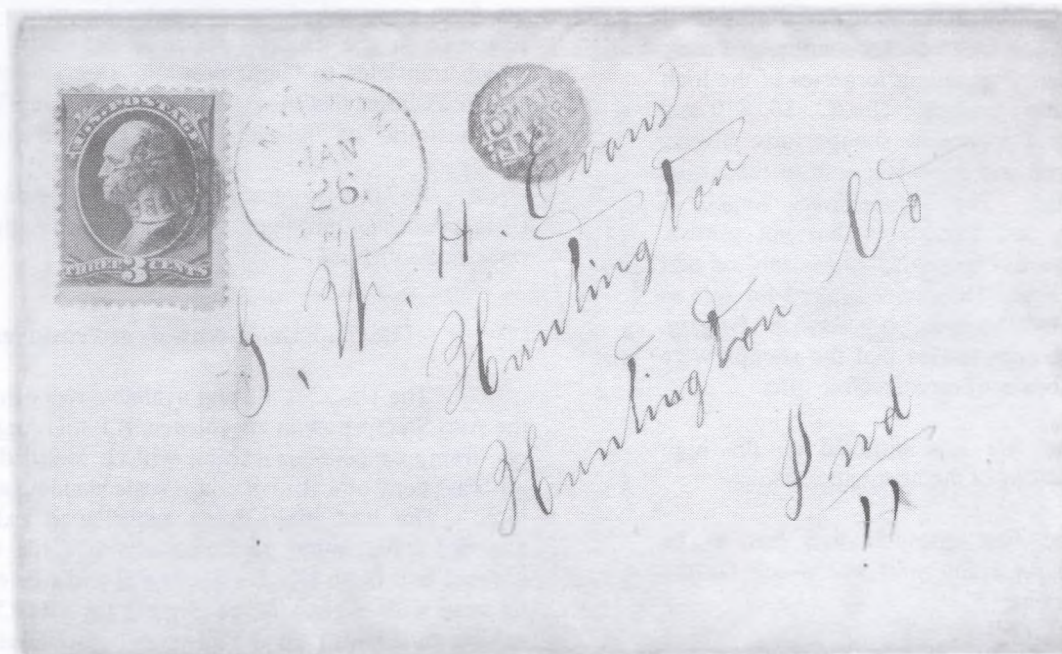 U.S. POSTAGE
THREE 3 CENTS
JAN
26.
H. Evans
Huntington
Huntington Co
Ind